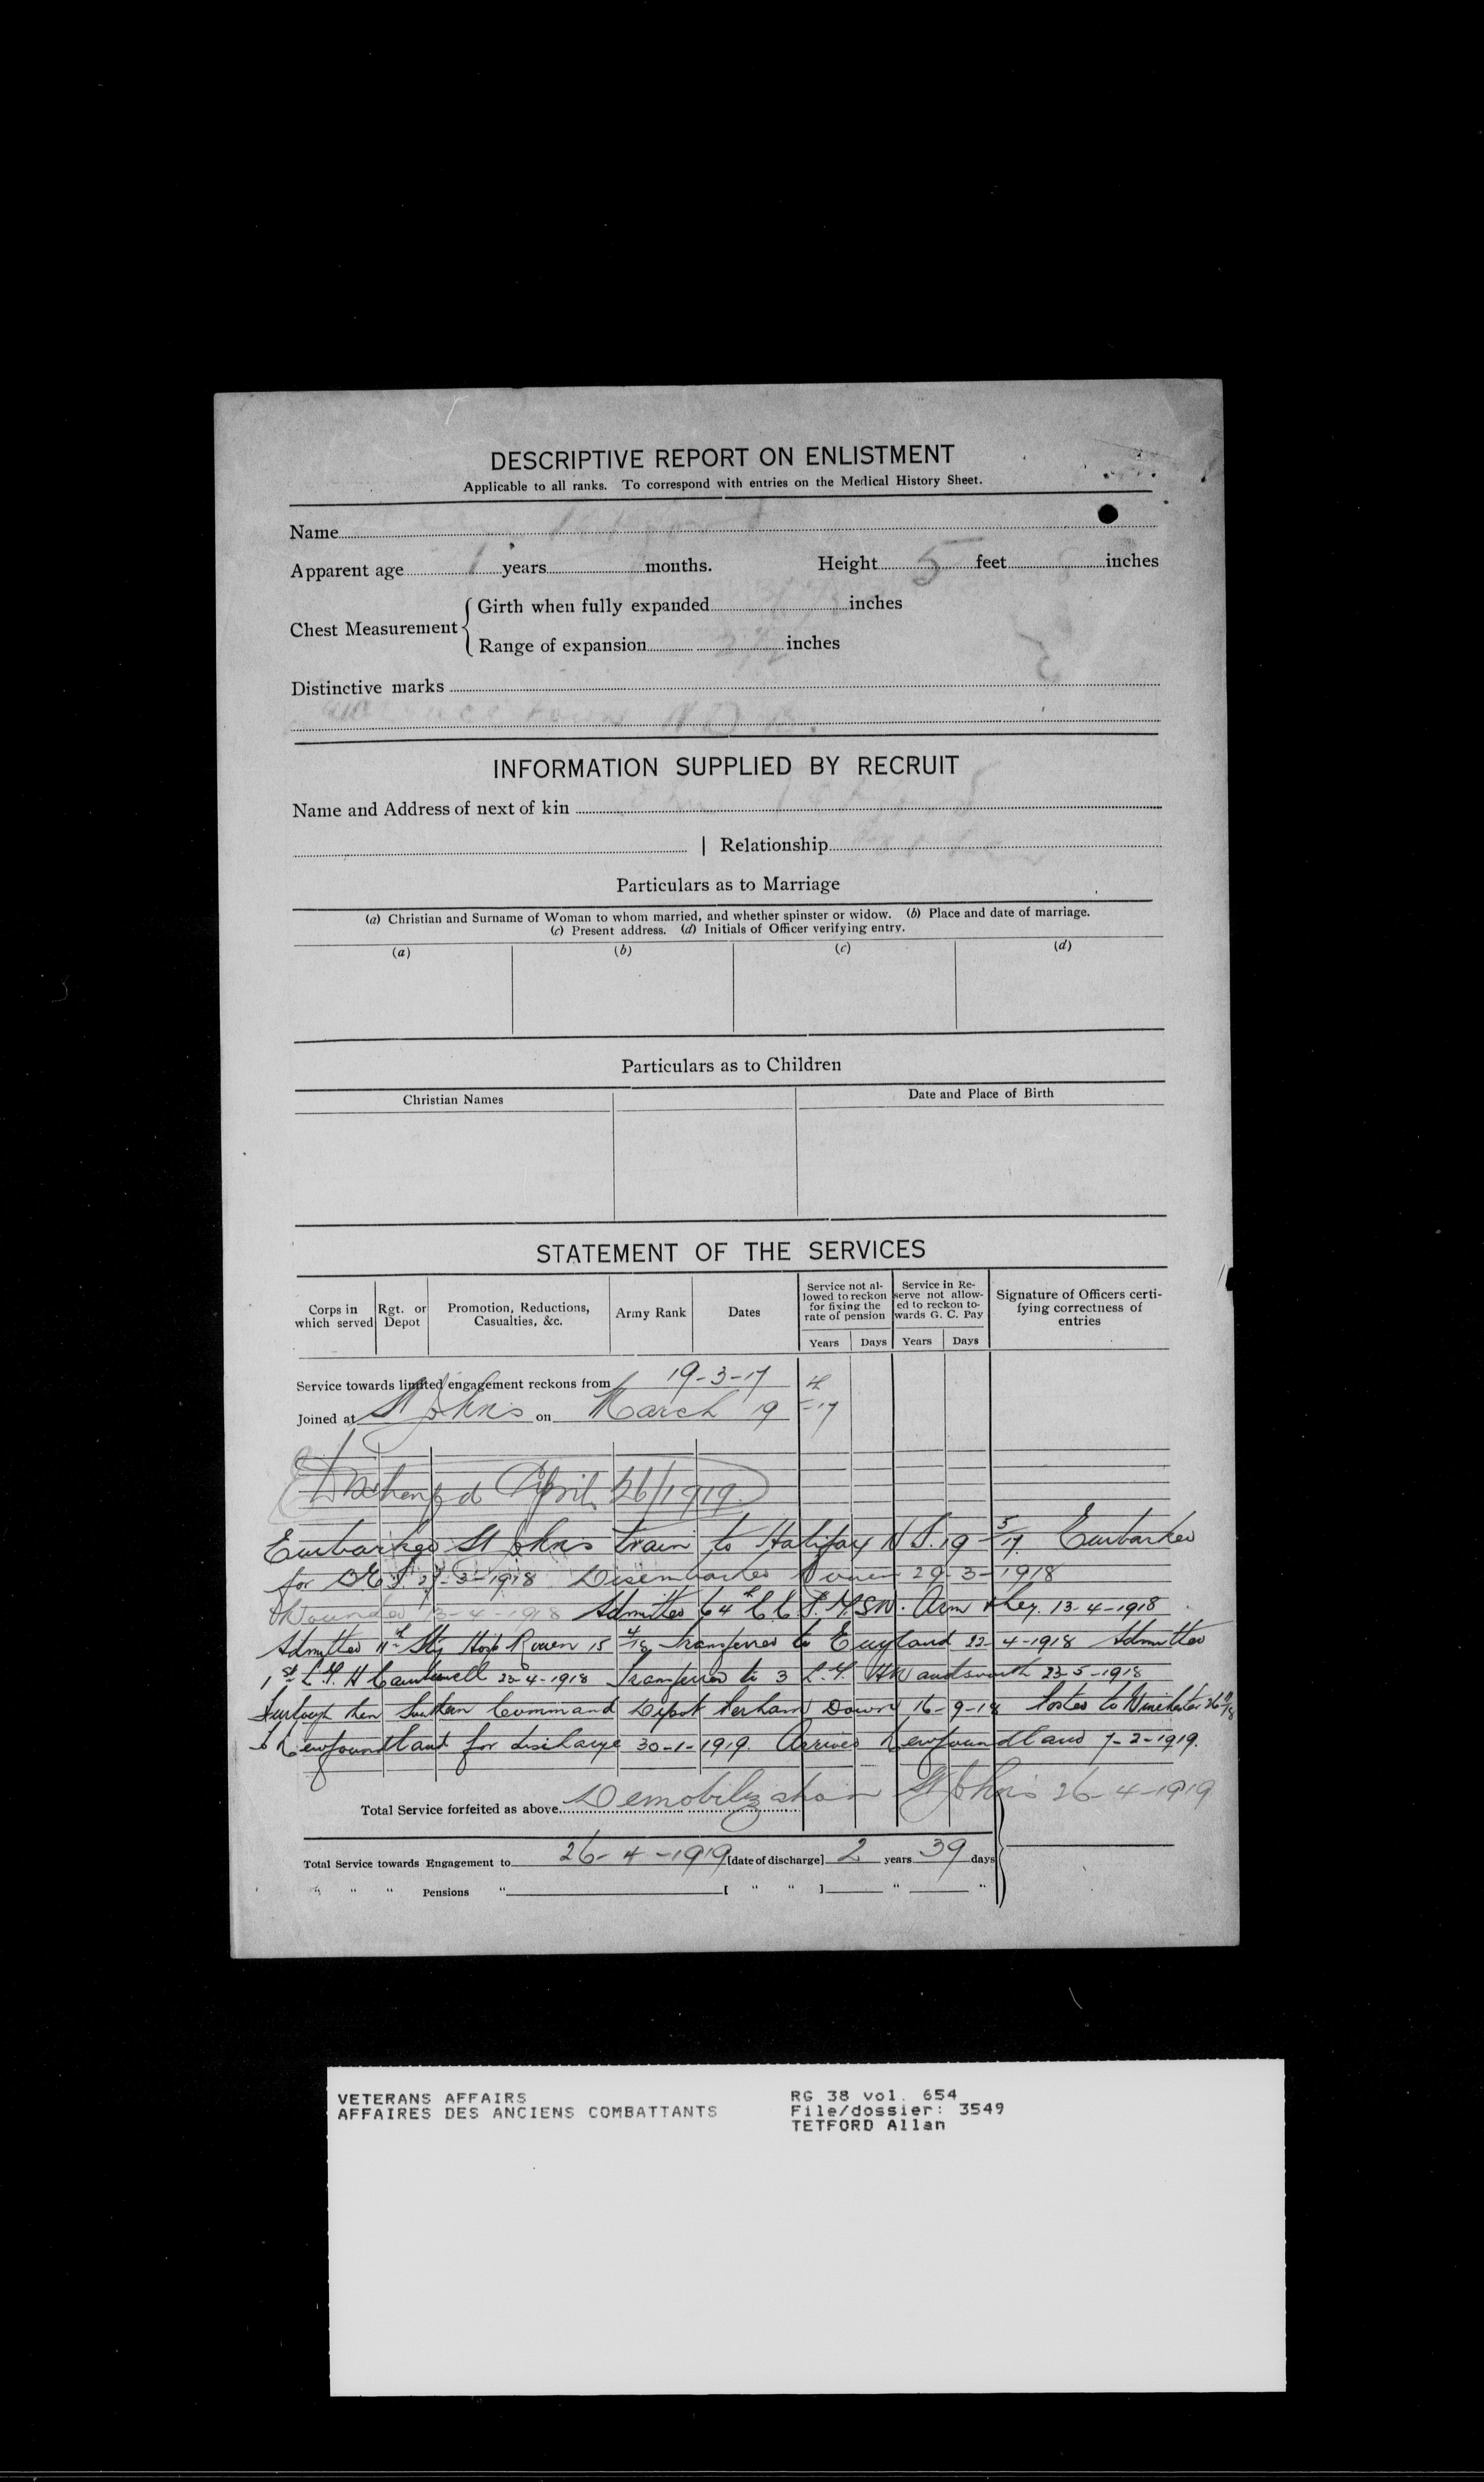 DESCRIPTIVE REPORT ON ENLISTMENT
Applicable to all ranks. To correspond with entries on the Medical History Sheet.
Name
Apparent age years months. Height 5 feet inches
Chest Measurement { Girth when fully expanded inches
Range of expansion inches
Distinctive marks
N D B.
INFORMATION SUPPLIED BY RECRUIT
Name and Address of next of kin
| Relationship
Particulars as to Marriage
(a) Christian and Surname of Woman to whom married, and whether spinster or widow. (b) Place and date of marriage.
(c) Present address. (d) Initials of Officer verifying entry.
(a) (b) (c) (d)
Particulars as to Children
Christian Names Date and Place of Birth
STATEMENT OF THE SERVICES
Corps in which served Rgt. or Depot Promotion, Reductions, Casualties, &c. Army Rank Dates Service not allowed to reckon for fixing the rate of pension Service in Reserve not allowed to reckon towards G. C. Pay Signature of Officers certifying correctness of entries
Years Days Years Days
Service towards limited engagement reckons from 19-3-17
Joined at St Johns on March 19 -17
April 26/1919
Embarked St Johns train to Halifax N S. 19-5-17. Embarked
for B E F 27-3-1918 Disembarked Rouen 29-3-1918
Wounded 13-4-1918 Admitted 64th C C S. G.S.W. Arm & Leg. 13-4-1918
Admitted 11th Sty Hosp Rouen 15 4/18 Transferred to England 22-4-1918 Admitted
1st L. G. H Camberwell 23-4-1918 Transferred to 3 L. G. H Wandsworth 23-5-1918
Furlough then Southern Command Depot Perham Down 16-9-18 Posted to Winchester 26 11/18
to Newfoundland for discharge 30-1-1919. Arrived Newfoundland 7-2-1919.
Total Service forfeited as above Demobilization St Johns 26-4-1919
Total Service towards Engagement to 26-4-1919 [date of discharge] 2 years 39 days
" " " Pensions " [ " " ] " "
VETERANS AFFAIRS
AFFAIRES DES ANCIENS COMBATTANTS
RG 38 vol. 654
File/dossier: 3549
TETFORD Allan